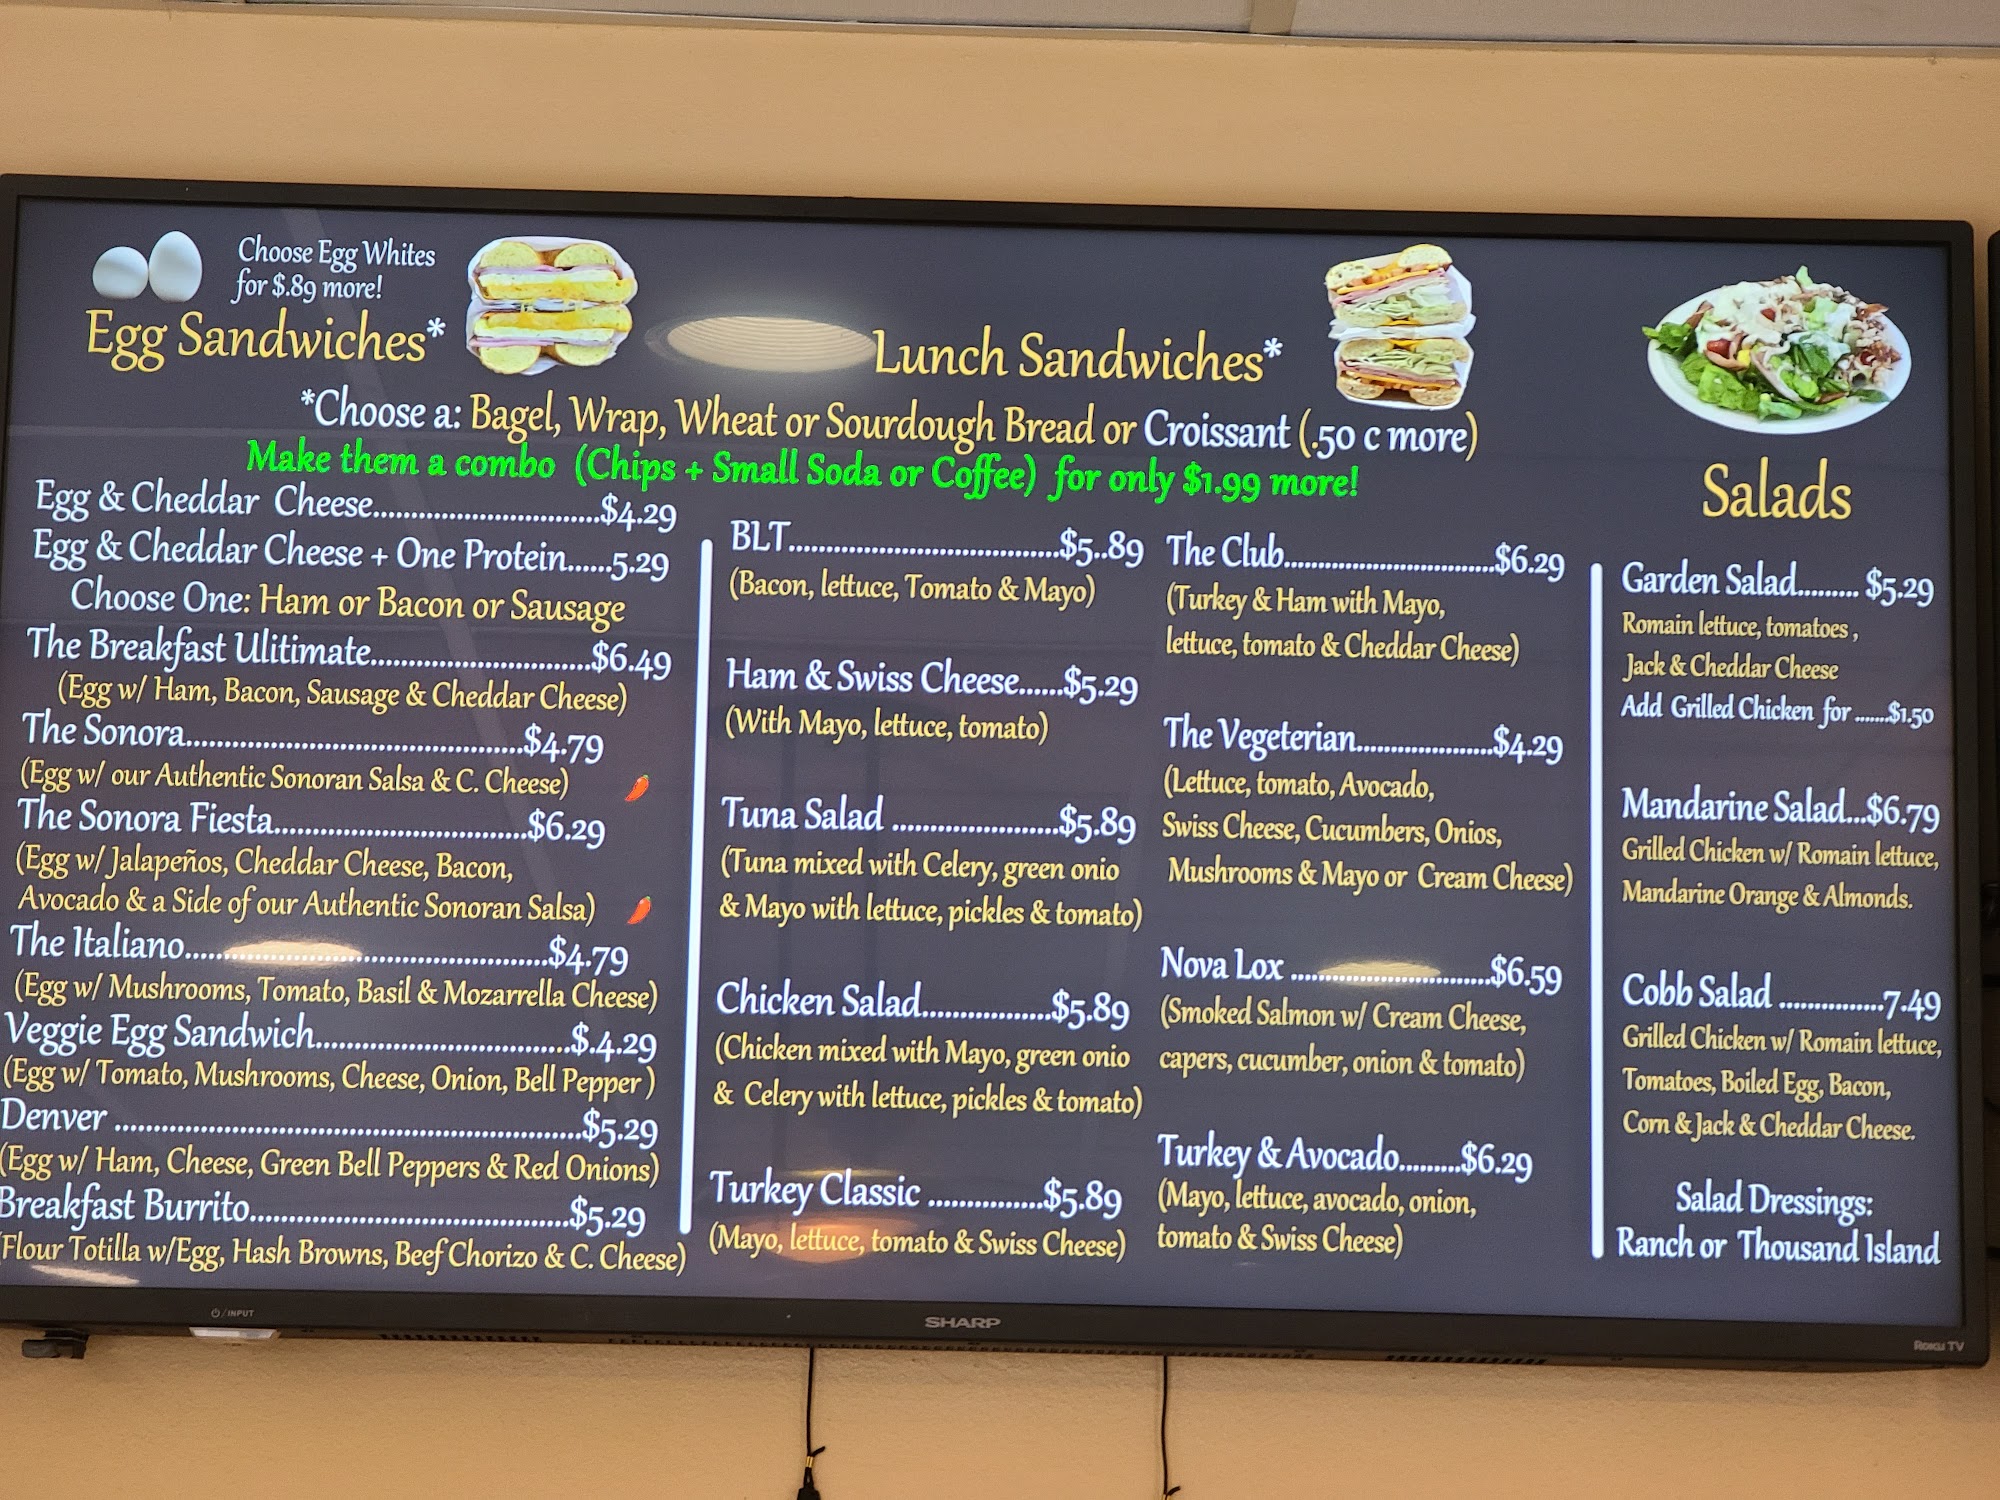 Choose Egg Whites
for $.89 more!
Egg Sandwiches*
Lunch Sandwiches*
*Choose a: Bagel, Wrap, Wheat or Sourdough Bread or Croissant (.50 c more)
Make them a combo (Chips + Small Soda or Coffee) for only $1.99 more!
Egg & Cheddar Cheese..............................$4.29
Egg & Cheddar Cheese + One Protein......5.29
Choose One: Ham or Bacon or Sausage
The Breakfast Ulitimate.............................$6.49
(Egg w/ Ham, Bacon, Sausage & Cheddar Cheese)
The Sonora.............................................$4.79
(Egg w/ our Authentic Sonoran Salsa & C. Cheese)
The Sonora Fiesta.................................$6.29
(Egg w/ Jalapeños, Cheddar Cheese, Bacon,
Avocado & a Side of our Authentic Sonoran Salsa)
The Italiano................................................$4.79
(Egg w/ Mushrooms, Tomato, Basil & Mozarrella Cheese)
Veggie Egg Sandwich..................................$.4.29
(Egg w/ Tomato, Mushrooms, Cheese, Onion, Bell Pepper )
Denver ..............................................................$5.29
(Egg w/ Ham, Cheese, Green Bell Peppers & Red Onions)
Breakfast Burrito..........................................$5.29
(Flour Totilla w/Egg, Hash Browns, Beef Chorizo & C. Cheese)
BLT....................................$5..89
(Bacon, lettuce, Tomato & Mayo)
Ham & Swiss Cheese......$5.29
(With Mayo, lettuce, tomato)
Tuna Salad ......................$5.89
(Tuna mixed with Celery, green onio
& Mayo with lettuce, pickles & tomato)
Chicken Salad.................$5.89
(Chicken mixed with Mayo, green onio
& Celery with lettuce, pickles & tomato)
Turkey Classic ...............$5.89
(Mayo, lettuce, tomato & Swiss Cheese)
The Club............................$6.29
(Turkey & Ham with Mayo,
lettuce, tomato & Cheddar Cheese)
The Vegeterian..................$4.29
(Lettuce, tomato, Avocado,
Swiss Cheese, Cucumbers, Onios,
Mushrooms & Mayo or Cream Cheese)
Nova Lox ..........................$6.59
(Smoked Salmon w/ Cream Cheese,
capers, cucumber, onion & tomato)
Turkey & Avocado.........$6.29
(Mayo, lettuce, avocado, onion,
tomato & Swiss Cheese)
Salads
Garden Salad......... $5.29
Romain lettuce, tomatoes ,
Jack & Cheddar Cheese
Add Grilled Chicken for .......$1.50
Mandarine Salad...$6.79
Grilled Chicken w/ Romain lettuce,
Mandarine Orange & Almonds.
Cobb Salad ...............7.49
Grilled Chicken w/ Romain lettuce,
Tomatoes, Boiled Egg, Bacon,
Corn & Jack & Cheddar Cheese.
Salad Dressings:
Ranch or Thousand Island
/INPUT
SHARP
Roku TV